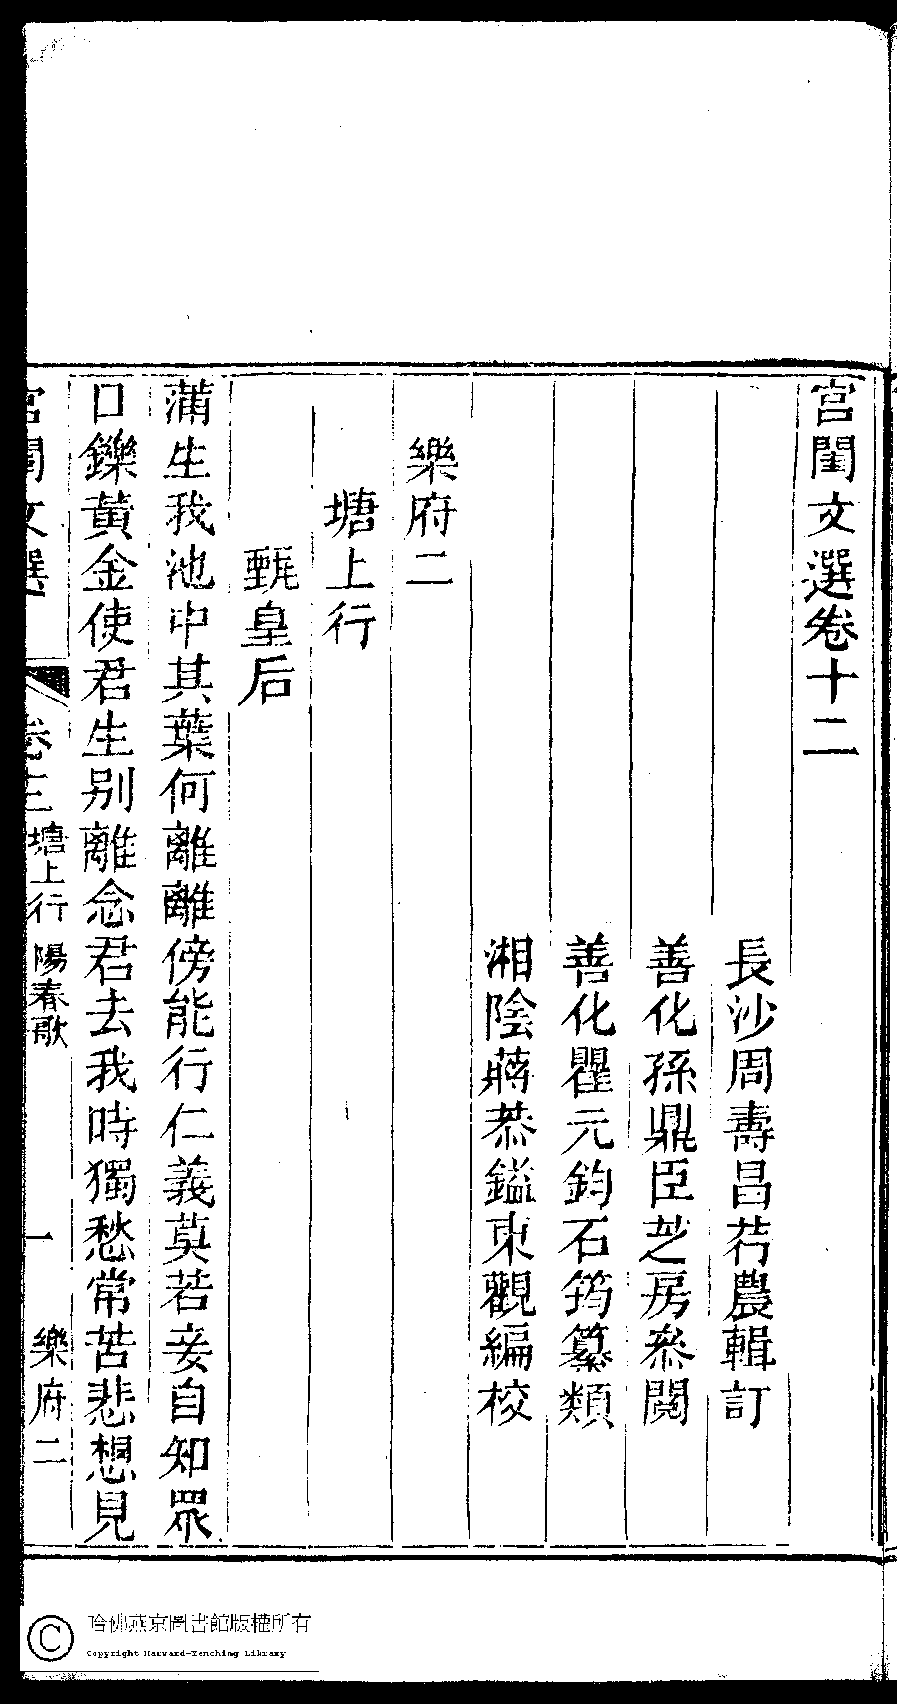 宮閨文選卷十二
長沙周壽昌荇農輯訂
善化孫鼎臣芝房叅閱
善化瞿元鈞石筠纂類
湘陰蔣恭鎰東觀編校
樂府二
塘上行
甄皇后
蒲生我池中其葉何離離傍能行仁義莫若妾自知眾
口鑠黃金使君生别離念君去我時獨愁常苦悲想見
宮閨文選 卷十二 塘上行 陽春歌 一 樂府二
哈佛燕京圖書館版權所有
Copyright Harvard-Yenching Library